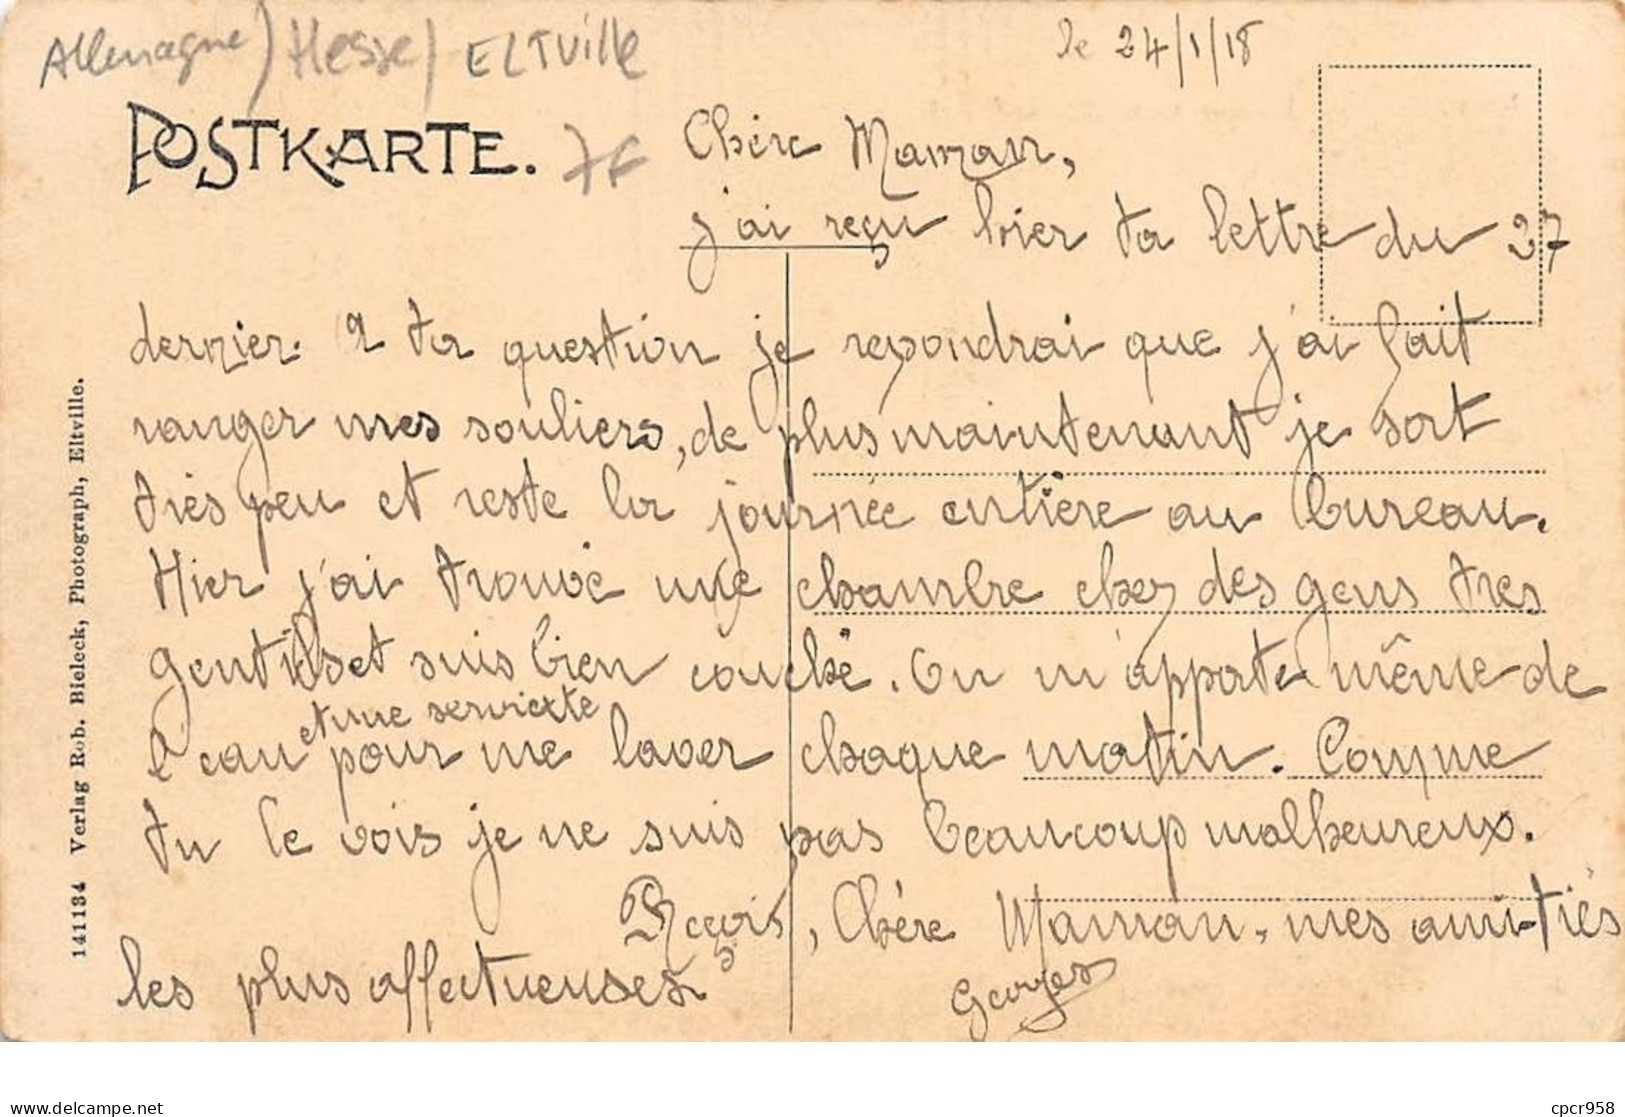 Allemagne) Hesse) ELTVille
le 24/1/18
POSTKARTE. 7F
Chère Maman,
j'ai reçu hier ta lettre du 27
dernier. A ta question je repondrai que j'ai fait
ranger mes souliers, de plus maintenant je sort
très peu et reste la journée entière au bureau.
Hier j'ai trouvé une chambre chez des gens tres
gentils et suis bien couché. On m'apporte même de
et une serviette
l'eau pour me laver chaque matin. Comme
tu le vois je ne suis pas beaucoup malheureux.
Reçois, Chère Maman, mes amitiés
les plus affectueuses
Georges
141134 Verlag Rob. Bieleck, Photograph, Eltville.
delcampe.net
cpcr958